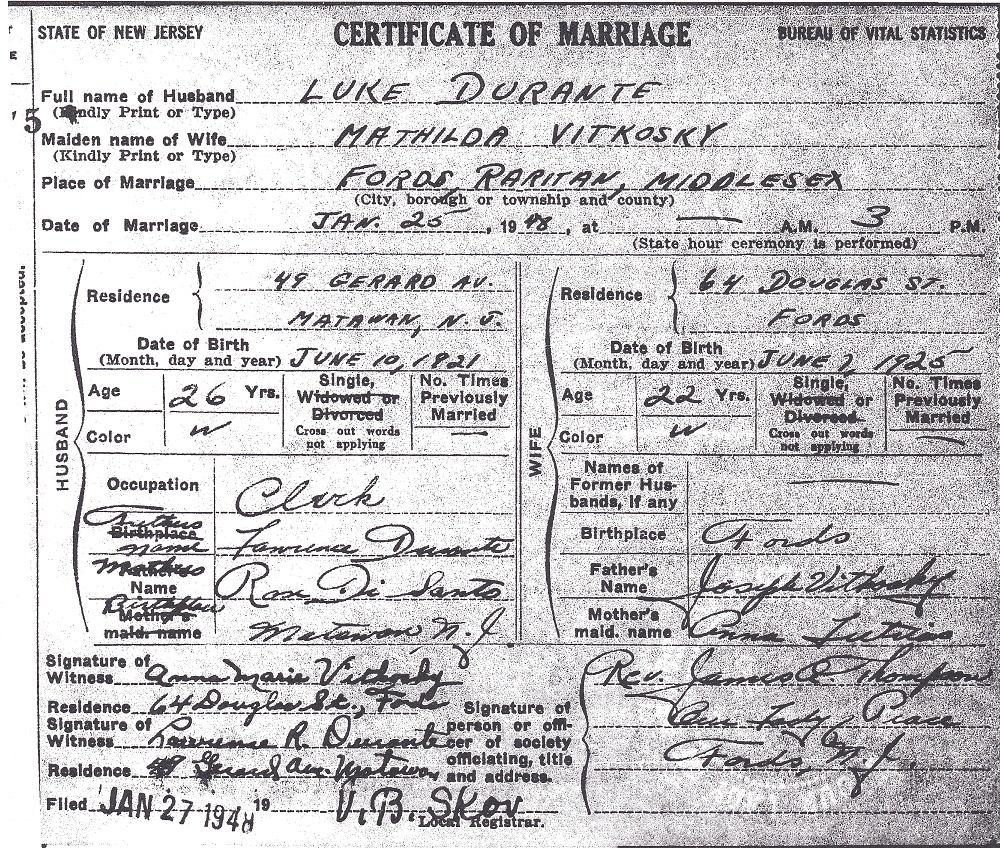 STATE OF NEW JERSEY CERTIFICATE OF MARRIAGE BUREAU OF VITAL STATISTICS
Full name of Husband LUKE DURANTE
(Kindly Print or Type)
5
Maiden name of Wife MATHILDA VITKOSKY
(Kindly Print or Type)
Place of Marriage FORDS, RARITAN, MIDDLESEX
(City, borough or township and county)
Date of Marriage JAN. 25, 1948, at — A.M. 3 P.M.
(State hour ceremony is performed)
HUSBAND
Residence 49 GERARD AV.
MATAWAN, N. J.
Date of Birth
(Month, day and year) JUNE 10, 1921
Age 26 Yrs. Single, Widowed or Divorced No. Times Previously Married —
Color W Cross out words not applying
Occupation Clerk
Birthplace Father's Name Lawrence Durante
Father's Mother's Name Rose Di Santo
Mother's maid. name Birthplace Matawan N. J.
WIFE
Residence 64 DOUGLAS ST.
FORDS
Date of Birth
(Month, day and year) JUNE 7, 1925
Age 22 Yrs. Single, Widowed or Divorced No. Times Previously Married —
Color W Cross out words not applying
Names of Former Husbands, if any —
Birthplace Fords
Father's Name Joseph Vitkosky
Mother's maid. name Anna
Signature of Witness Anna Marie Vitkosky
Residence 64 Douglas St., Fords
Signature of Witness Lawrence R. Durante
Residence 49 Gerard Ave. Matawan
Signature of person or officer of society officiating, title and address.
Rev. James Thompson
Our Lady of Peace
Fords, N. J.
Filed JAN 27 1948 19 V. B. SKOV
Local Registrar.